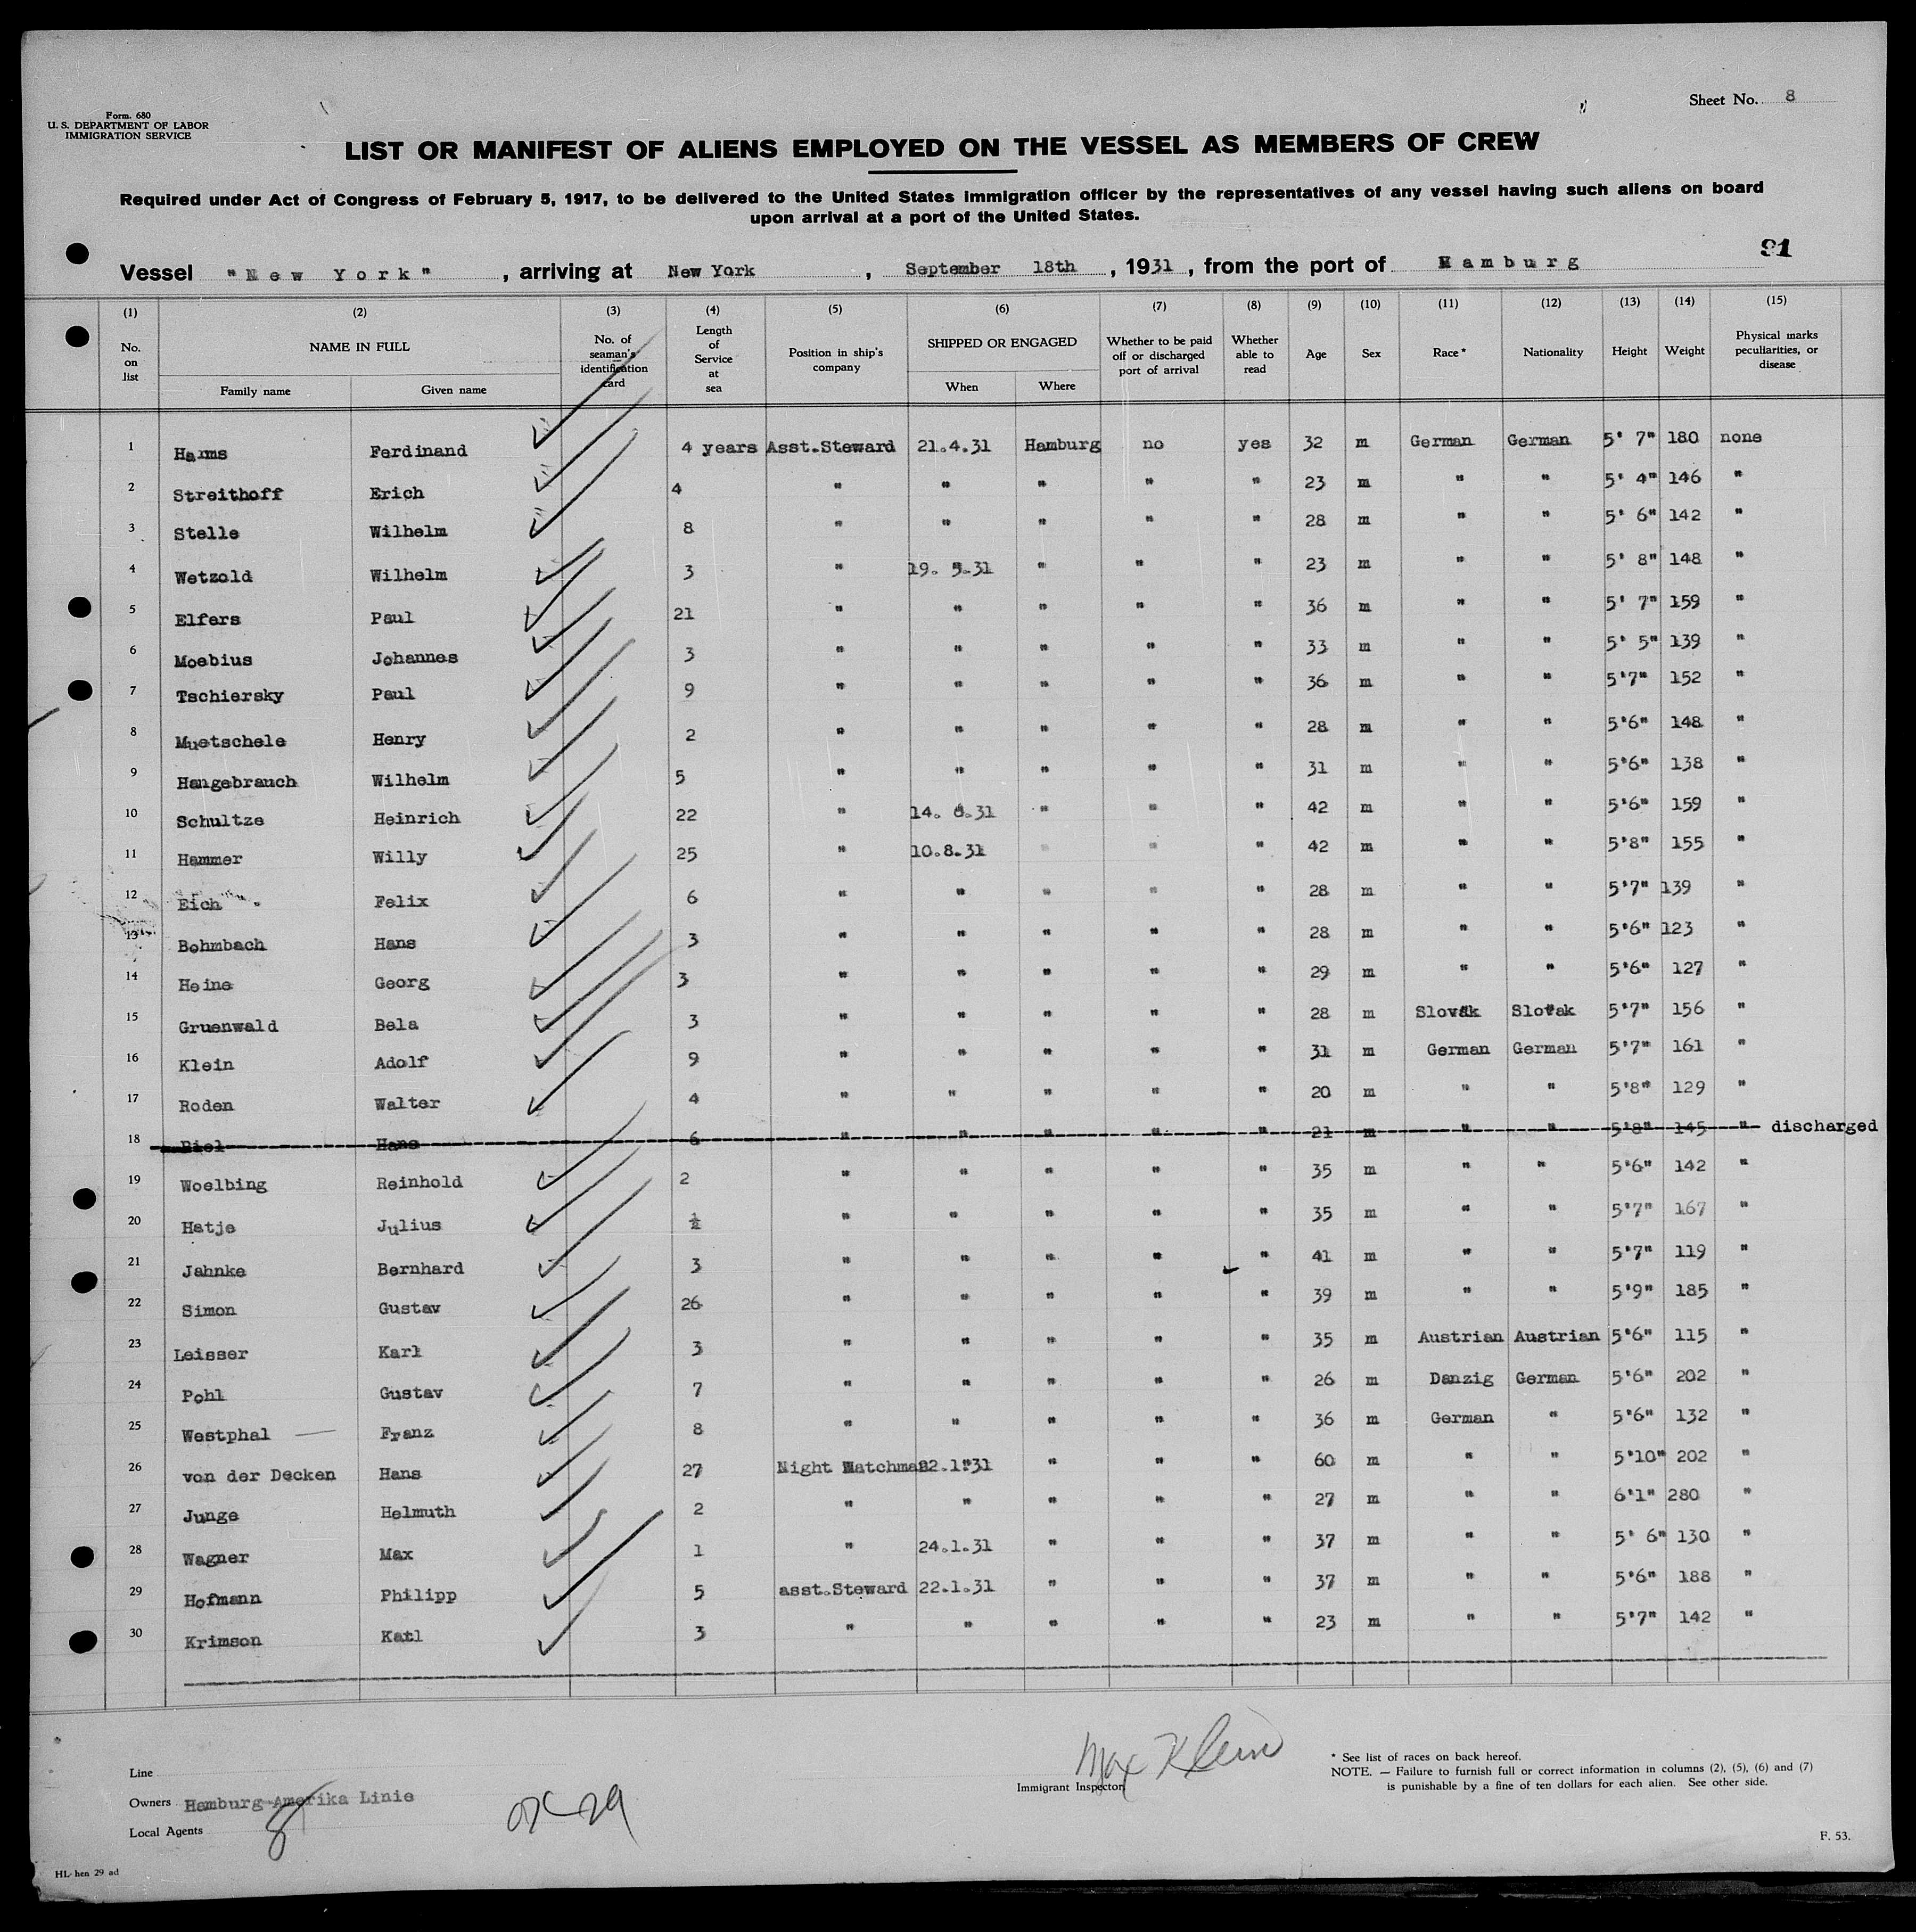 Form 680
U. S. DEPARTMENT OF LABOR
IMMIGRATION SERVICE
Sheet No. 8
LIST OR MANIFEST OF ALIENS EMPLOYED ON THE VESSEL AS MEMBERS OF CREW
Required under Act of Congress of February 5, 1917, to be delivered to the United States immigration officer by the representatives of any vessel having such aliens on board
upon arrival at a port of the United States.
91
Vessel "New York", arriving at New York, September 18th, 1931, from the port of Hamburg
(1) (2) (3) (4) (5) (6) (7) (8) (9) (10) (11) (12) (13) (14) (15)
No. on list NAME IN FULL No. of seaman's identification card Length of Service at sea Position in ship's company SHIPPED OR ENGAGED Whether to be paid off or discharged port of arrival Whether able to read Age Sex Race* Nationality Height Weight Physical marks peculiarities, or disease
Family name Given name When Where
1 Harms Ferdinand 4 years Asst.Steward 21.4.31 Hamburg no yes 32 m German German 5' 7" 180 none
2 Streithoff Erich 4 " " " " " 23 m " " 5' 4" 146 "
3 Stelle Wilhelm 8 " " " " " 28 m " " 5' 6" 142 "
4 Wetzold Wilhelm 3 " 19. 5.31 " " " 23 m " " 5' 8" 148 "
5 Elfers Paul 21 " " " " " 36 m " " 5' 7" 159 "
6 Moebius Johannes 3 " " " " " 33 m " " 5' 5" 139 "
7 Tschiersky Paul 9 " " " " " 36 m " " 5'7" 152 "
8 Muetschele Henry 2 " " " " " 28 m " " 5'6" 148 "
9 Haugebrauch Wilhelm 5 " " " " " 31 m " " 5'6" 138 "
10 Schultze Heinrich 22 " 14. 8.31 " " " 42 m " " 5'6" 159 "
11 Hammer Willy 25 " 10.8.31 " " " 42 m " " 5'8" 155 "
12 Eich Felix 6 " " " " " 28 m " " 5'7" 139 "
13 Bohmbach Hans 3 " " " " " 28 m " " 5'6" 123 "
14 Heine Georg 3 " " " " " 29 m " " 5'6" 127 "
15 Gruenwald Bela 3 " " " " " 28 m Slovak Slovak 5'7" 156 "
16 Klein Adolf 9 " " " " " 31 m German German 5'7" 161 "
17 Roden Walter 4 " " " " " 20 m " " 5'8" 129 "
18 Biel Hans 6 " " " " " 21 m " " 5'8" 145 " discharged
19 Woelbing Reinhold 2 " " " " " 35 m " " 5'6" 142 "
20 Hatje Julius " " " " " 35 m " " 5'7" 167 "
21 Jahnke Bernhard 3 " " " " " 41 m " " 5'7" 119 "
22 Simon Gustav 26 " " " " " 39 m " " 5'9" 185 "
23 Leisser Karl 3 " " " " " 35 m Austrian Austrian 5'6" 115 "
24 Pohl Gustav 7 " " " " " 26 m Danzig German 5'6" 202 "
25 Westphal Franz 8 " " " " " 36 m German " 5'6" 132 "
26 von der Decken Hans 27 Night Watchman 22.1.31 " " " 60 m " " 5'10" 202 "
27 Junge Helmuth 2 " " " " " 27 m " " 6'1" 280 "
28 Wagner Max 1 " 24.1.31 " " " 37 m " " 5' 6" 130 "
29 Hofmann Philipp 5 asst.Steward 22.1.31 " " " 37 m " " 5'6" 188 "
30 Krimson Katl 3 " " " " " 23 m " " 5'7" 142 "
Line
Owners Hamburg-Amerika Linie
Local Agents
8
Max Klein
Immigrant Inspector
* See list of races on back hereof.
NOTE. — Failure to furnish full or correct information in columns (2), (5), (6) and (7)
is punishable by a fine of ten dollars for each alien. See other side.
F. 53.
HL hen 29 ad